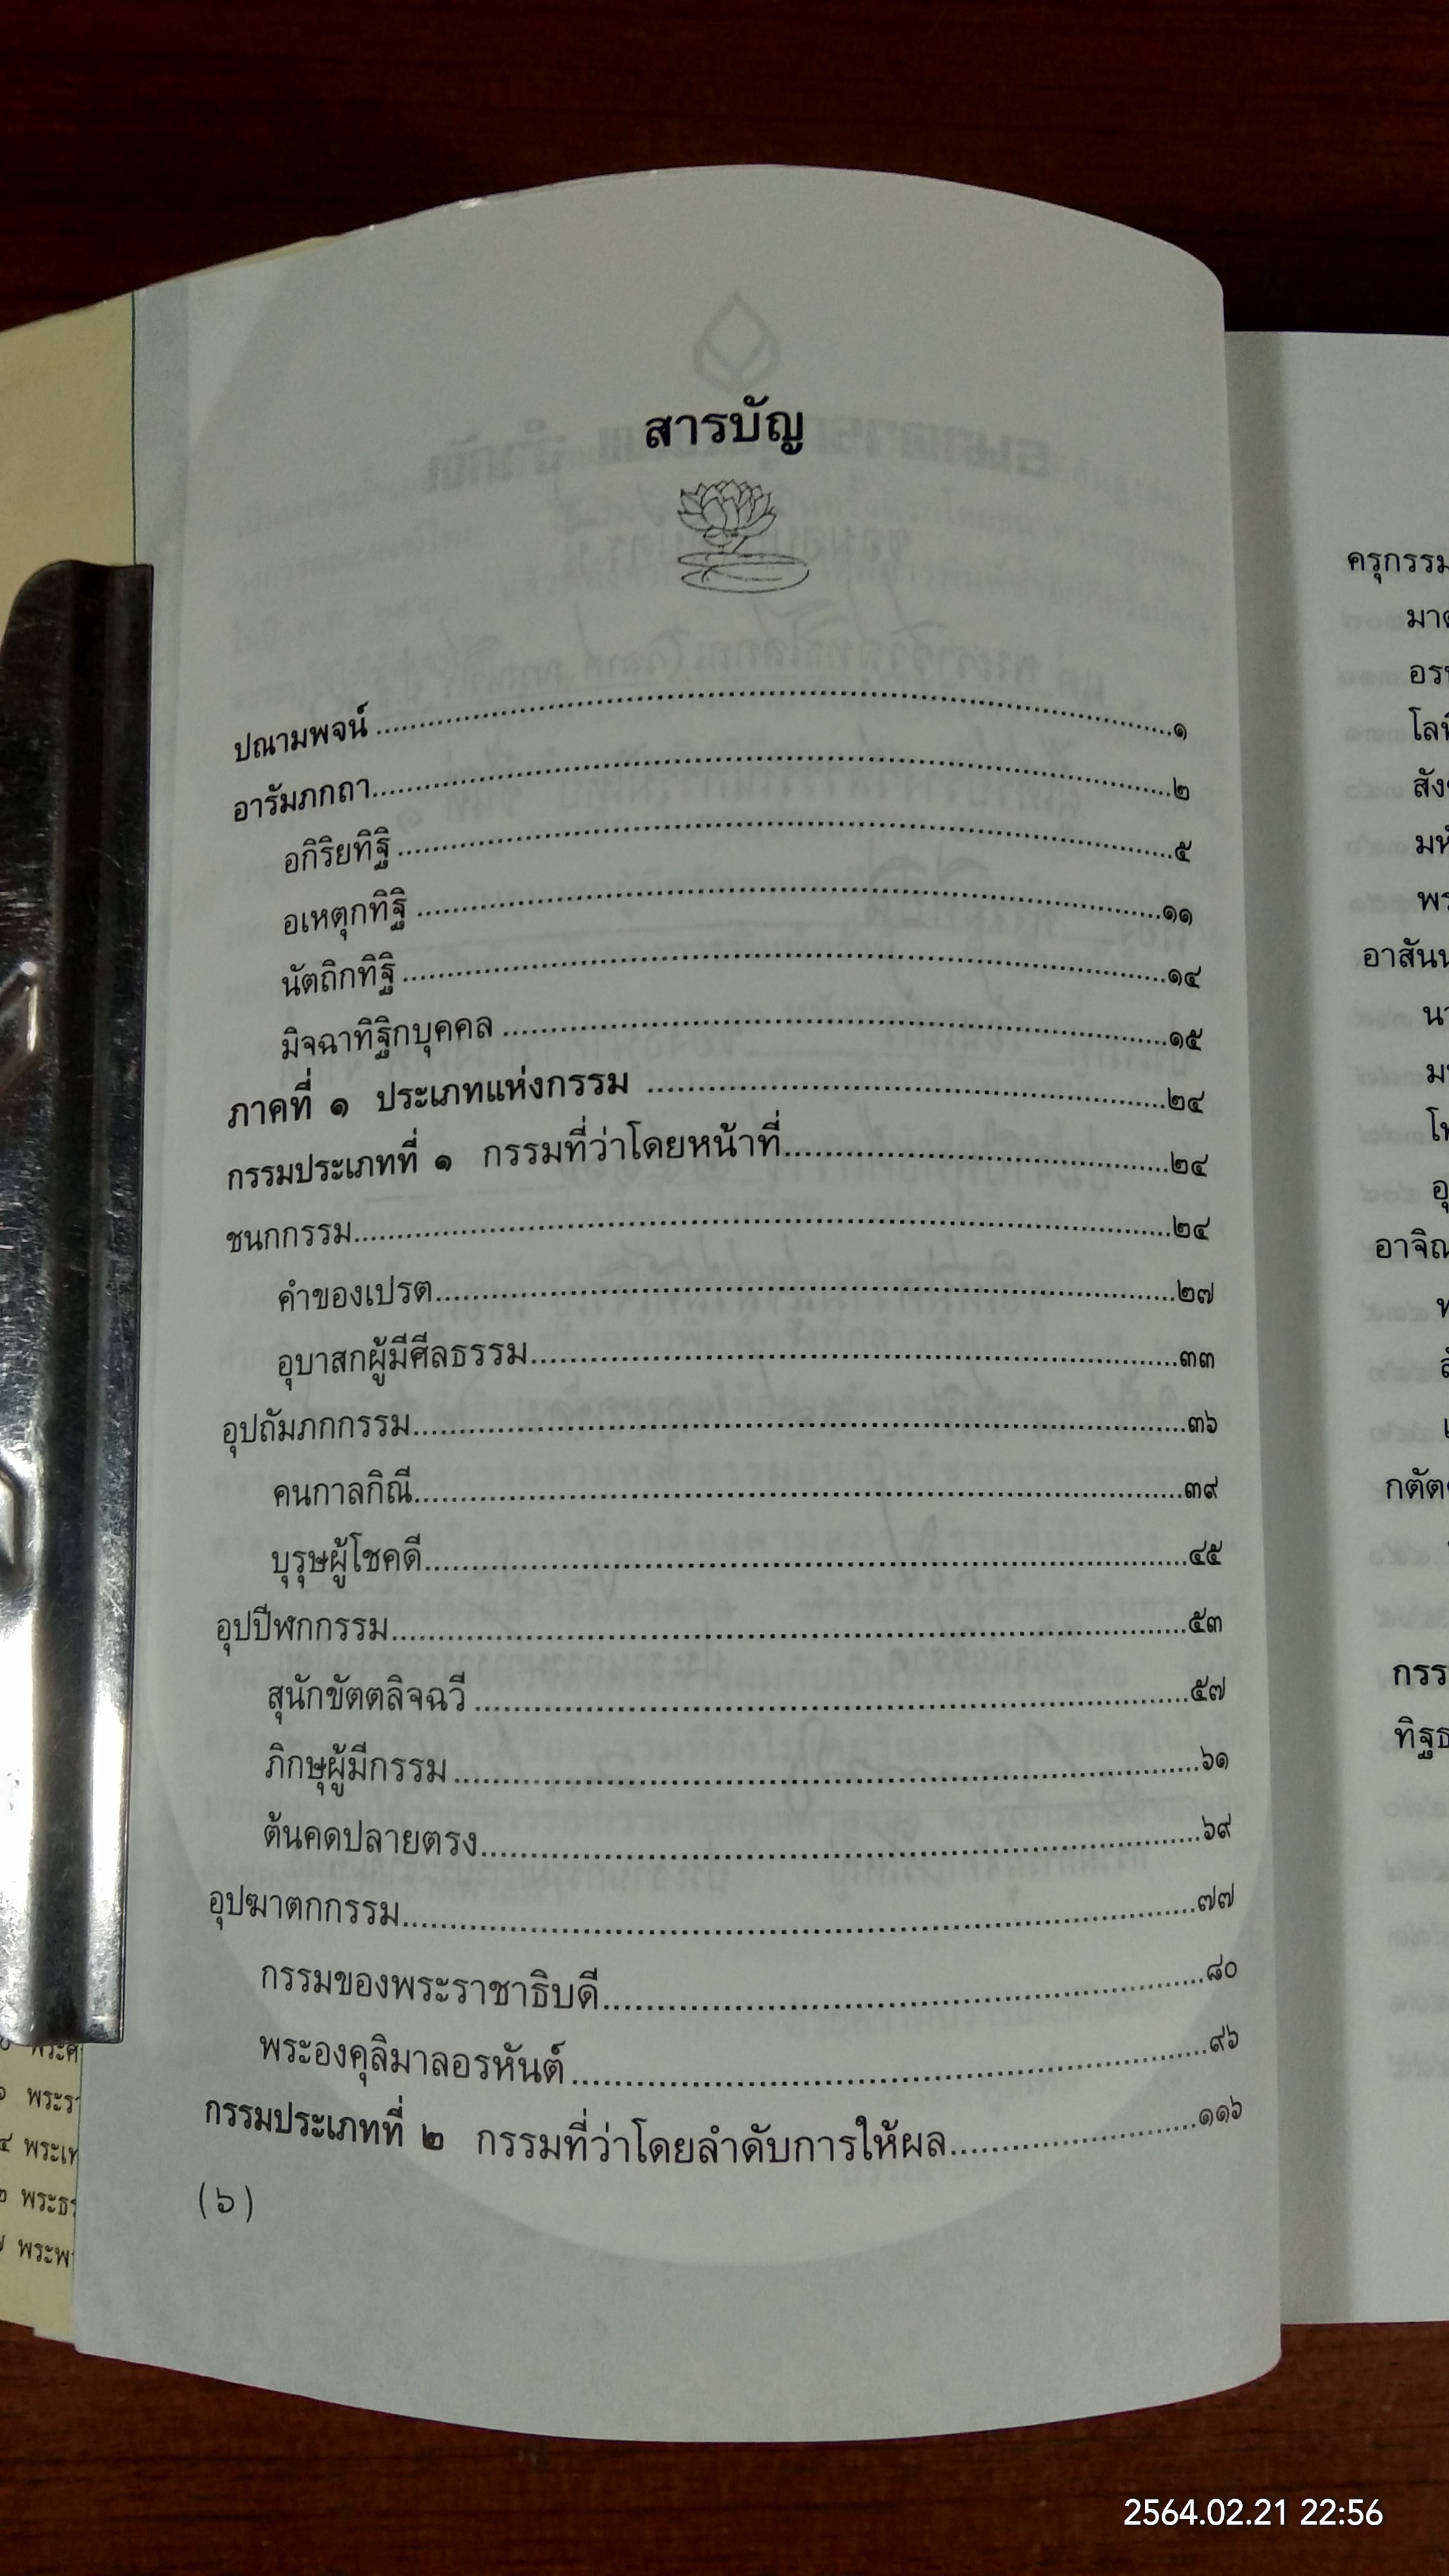 สารบัญ
ปณามพจน์ ........ ๑
อารัมภกถา........ ๒
อกิริยทิฐิ ........ ๕
อเหตุกทิฐิ ........ ๑๑
นัตถิกทิฐิ ........ ๑๔
มิจฉาทิฐิกบุคคล ........ ๑๕
ภาคที่ ๑ ประเภทแห่งกรรม ........ ๒๔
กรรมประเภทที่ ๑ กรรมที่ว่าโดยหน้าที่........ ๒๔
ชนกกรรม........ ๒๔
คำของเปรต........ ๒๗
อุบาสกผู้มีศีลธรรม........ ๓๓
อุปถัมภกกรรม........ ๓๖
คนกาลกิณี........ ๓๙
บุรุษผู้โชคดี........ ๔๕
อุปปีฬกกรรม........ ๕๓
สุนักขัตตลิจฉวี ........ ๕๗
ภิกษุผู้มีกรรม ........ ๖๑
ต้นคดปลายตรง........ ๖๙
อุปฆาตกกรรม........ ๗๗
กรรมของพระราชาธิบดี........ ๘๐
พระองคุลิมาลอรหันต์ ........ ๙๖
กรรมประเภทที่ ๒ กรรมที่ว่าโดยลำดับการให้ผล........ ๑๑๖
(๖)
ครุกรรม
2564.02.21 22:56